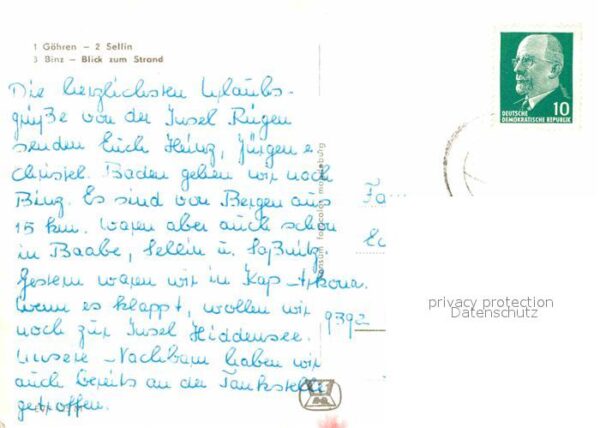 1 Göhren – 2 Sellin
3 Binz – Blick zum Strand
Die herzlichsten Urlaubs-
grüße von der Insel Rügen
senden Euch Heinz, Jürgen
Christel. Baden gehen wir nach
Binz. Es sind von Bergen aus
15 km. Waren aber auch schon
in Baabe, Sellin u. Saßnitz
Gestern waren wir in Kap-Arkona.
Wenn es klappt, wollen wir
noch zur Insel Hiddensee.
Unsere Nachbarn haben wir
auch bereits an der Tankstelle
getroffen.
Konsum fotocolor magdeburg
10
DEUTSCHE
DEMOKRATISCHE REPUBLIK
Fa
9392
privacy protection
Datenschutz